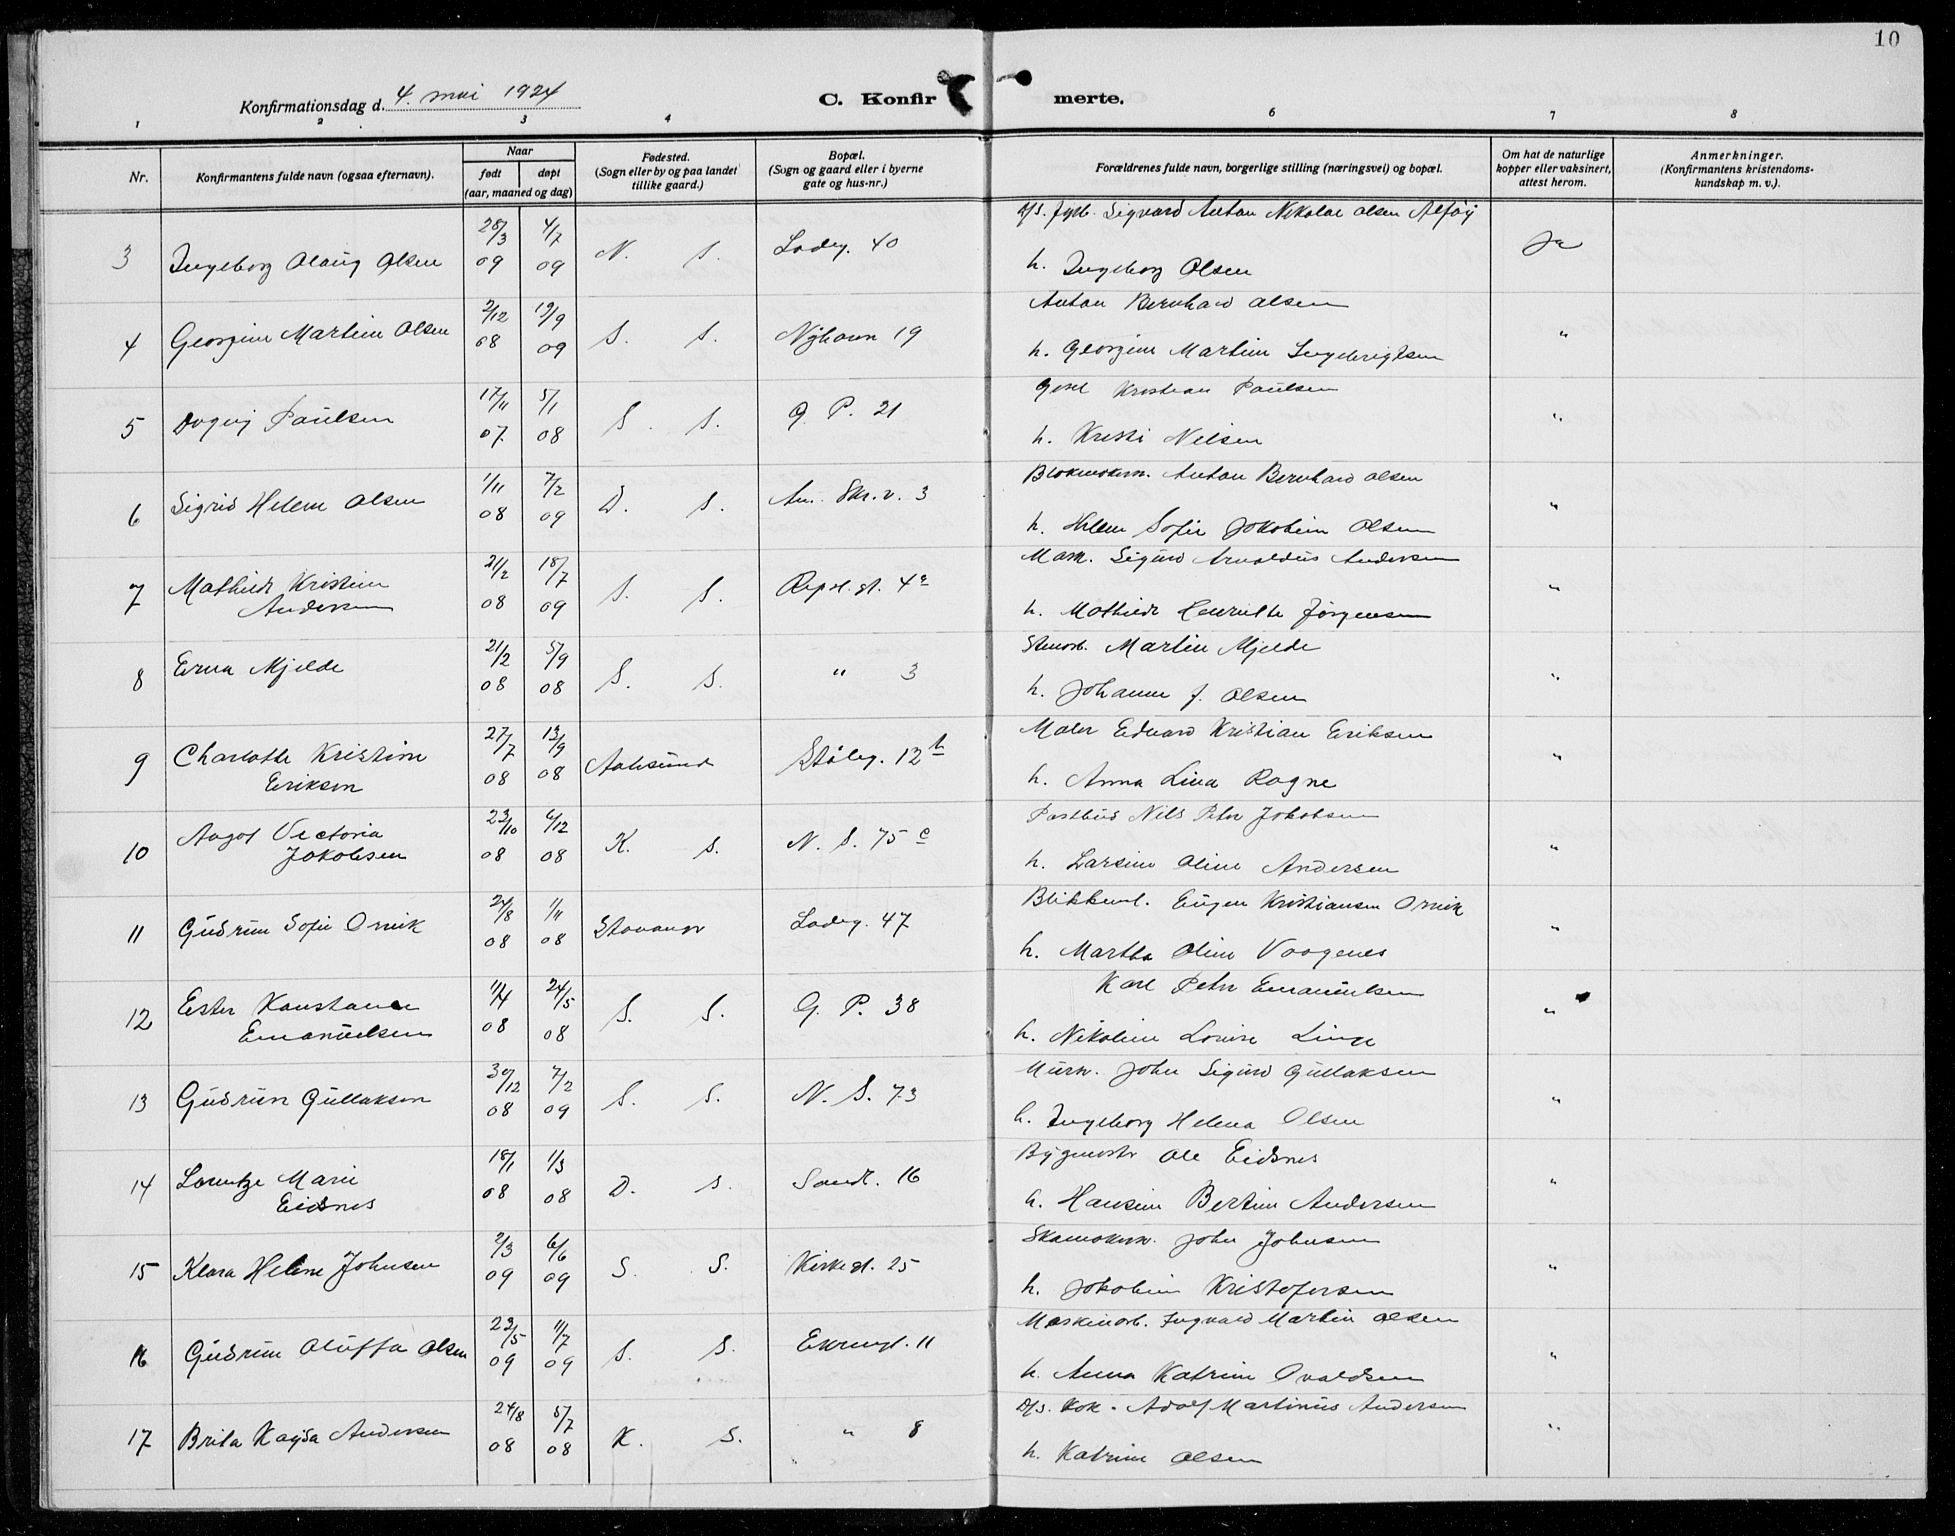 10
Konfirmationsdag d. 4. mai 1924
C. Konfirmerte.
1 2 3 4 6 7 8
Nr.
Konfirmantens fulde navn (ogsaa efternavn).
Naar
født døpt
(aar, maaned og dag)
Fødested.
(Sogn eller by og paa landet
tillike gaard.)
Bopæl.
(Sogn og gaard eller i byerne
gate og hus-nr.)
Forældrenes fulde navn, borgerlige stilling (næringsvei) og bopæl.
Om hat de naturlige
kopper eller vaksinert,
attest herom.
Anmerkninger.
(Konfirmantens kristendoms-
kundskap m. v.).
28/3 4/7 D/s. fyrb. Sigvard Anton Nikolai Olsen
3 Ingeborg Olaug Olsen 09 09 N. S. Ladeg. 40 Ja
h. Ingeborg Olsen
2/12 19/9 Anton Bernhard Olsen
4 Georgine Martine Olsen 08 09 S. S. Nyhavn 19 "
h. Georgine Martine Ingebrigtsen
17/11 5/1 Kristian Paulsen
5 Dagny Paulsen 07 08 S. S. G. P. 21 "
h. Kristi Nilsen
1/11 7/2 Blokmakerm. Anton Bernhard Olsen
6 Sigrid Helene Olsen 08 09 D. S. An. Skr. v. 3 "
h. Helene Sofie Jakobine Olsen
21/2 18/7 Mask. Sigurd Arnoldus Andersen
7 Mathilde Kristine
Andersen 08 09 S. S. Repsl. gt. 4a "
h. Mathilde Henriette Jørgensen
21/2 5/9 Stenarb. Martin Mjelde
8 Erna Mjelde 08 08 S. S. " 3 "
h. Johanne J. Olsen
27/7 13/9 Maler Edvard Kristian Eriksen
9 Charlotte Kristine
Eriksen 08 08 Aalesund Støleg. 12 b "
h. Anna Lina Rogne
23/10 6/12 Postbud Nils Peter Jakobsen
10 Aagot Victoria
Jakobsen 08 08 K. S. N. S. 75 c "
h. Larsine Oline Andersen
24/8 1/11 Blikkensl. Eugen Kristiansen Ornik
11 Gudrun Sofie Ornik 08 08 Stavanger Ladeg. 47 "
h. Martha Oline Vaagenes
11/4 24/5 Karl Peter Emanuelsen
12 Ester Konstance
Emanuelsen 08 08 S. S. G. P. 38 "
h. Nikoline Lovise Linge
30/12 7/2 Murm. John Sigurd Gullaksen
13 Gudrun Gullaksen 08 09 S. S. N. S. 73 "
h. Ingeborg Helena Olsen
18/1 1/3 Bygmestr Ole Eidsnes
14 Lorentze Marie
Eidsnes 08 08 D. S. Sandt. 16 "
h. Hansine Bertine Andersen
2/3 6/6 Skomakerm. John Johnsen
15 Klara Helene Johnsen 09 09 S. S. Kirkegt. 25 "
h. Jakobine Kristofersen
23/5 11/7 Maskinarb. Ingvald Martin Olsen
16 Gudrun Oluffa Olsen 09 09 S. S. Ekrengt. 11 "
h. Anna Katrine Ovaldsen
24/8 5/7 D/s. Kok. Adolf Martinus Andersen
17 Brita Kaysa Andersen 08 08 K. S. " 8 "
h. Katrine Olsen